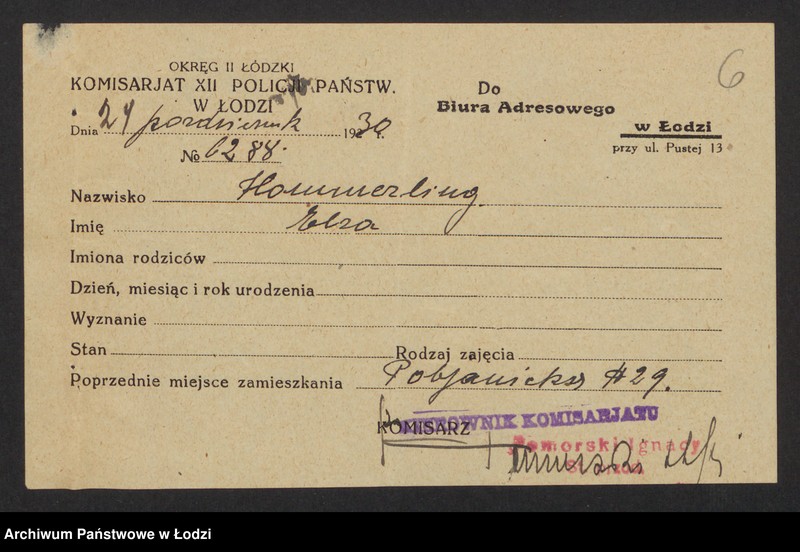 6
OKRĘG II ŁÓDZKI
KOMISARJAT XII POLICJI PAŃSTW.
W ŁODZI
Dnia 24 październik 1930 r.
No 6288.
Do
Biura Adresowego
w Łodzi
przy ul. Pustej 13
Nazwisko Hammerling
Imię Elza
Imiona rodziców
Dzień, miesiąc i rok urodzenia
Wyznanie
Stan Rodzaj zajęcia
Poprzednie miejsce zamieszkania Pabjanicka # 29.
KIEROWNIK KOMISARJATU
KOMISARZ
Pomorski Ignacy
Archiwum Państwowe w Łodzi